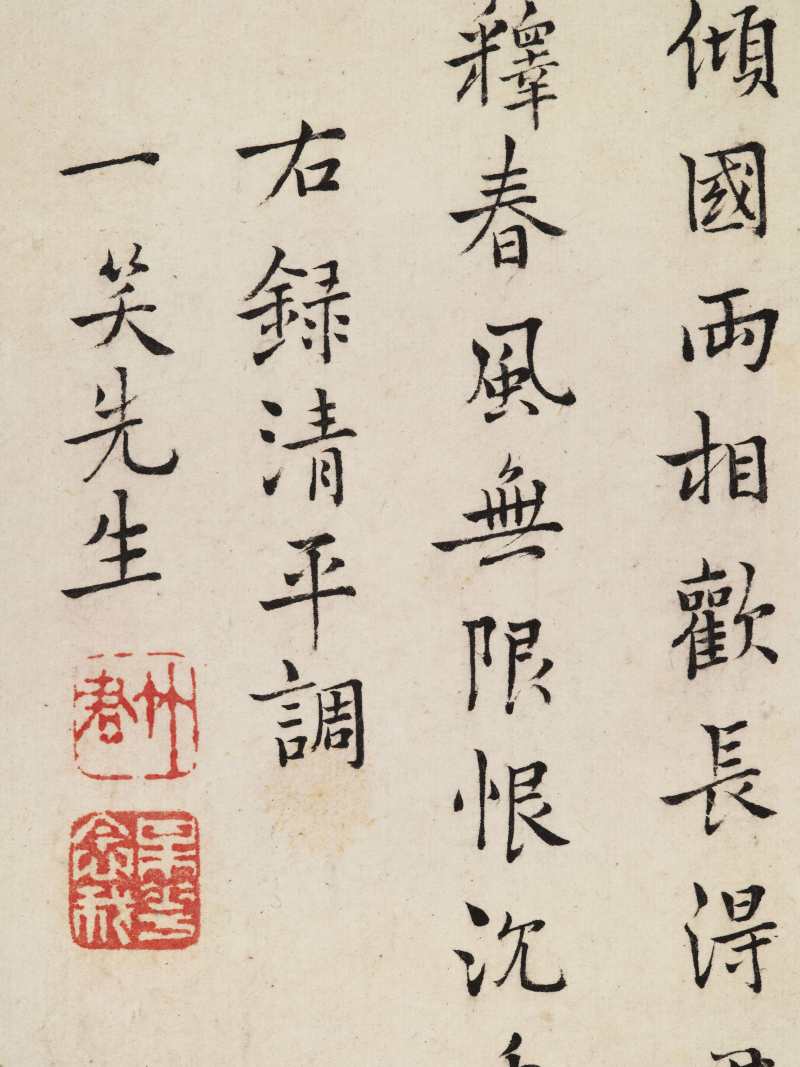 傾國兩相歡長得
釋春風無限恨沈
右録清平調
一笑先生